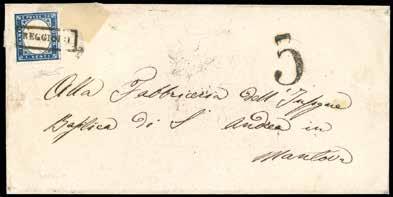 REGGIOLO
5
Alla Fabbriceria dell' Insigne
Basilica di S. Andrea in
Mantova